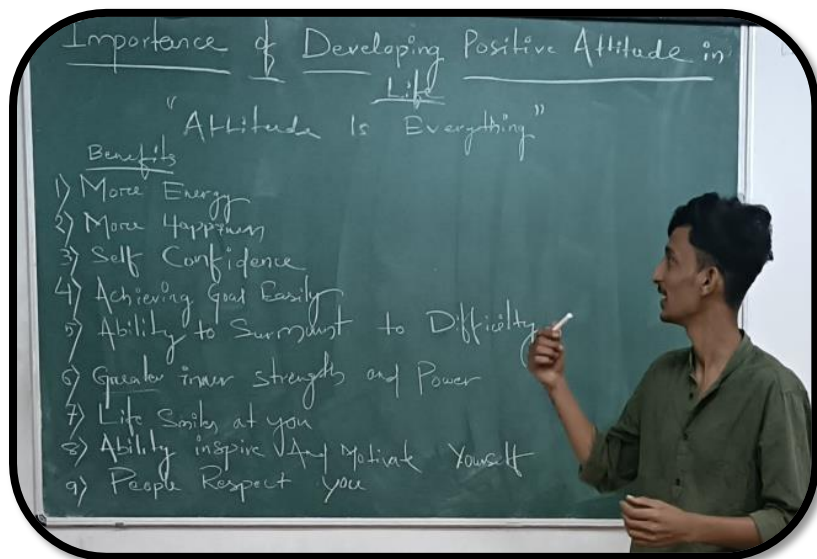 Importance of Developing Positive Attitude in
Life
"Attitude Is Everything"
Benefits
1) More Energy
2) More Happiness
3) Self Confidence
4) Achieving Goal Easily
5) Ability to Surmount to Difficulty
6) Greater inner strength and Power
7) Life Smiles at you
8) Ability inspire And Motivate Yourself
9) People Respect you